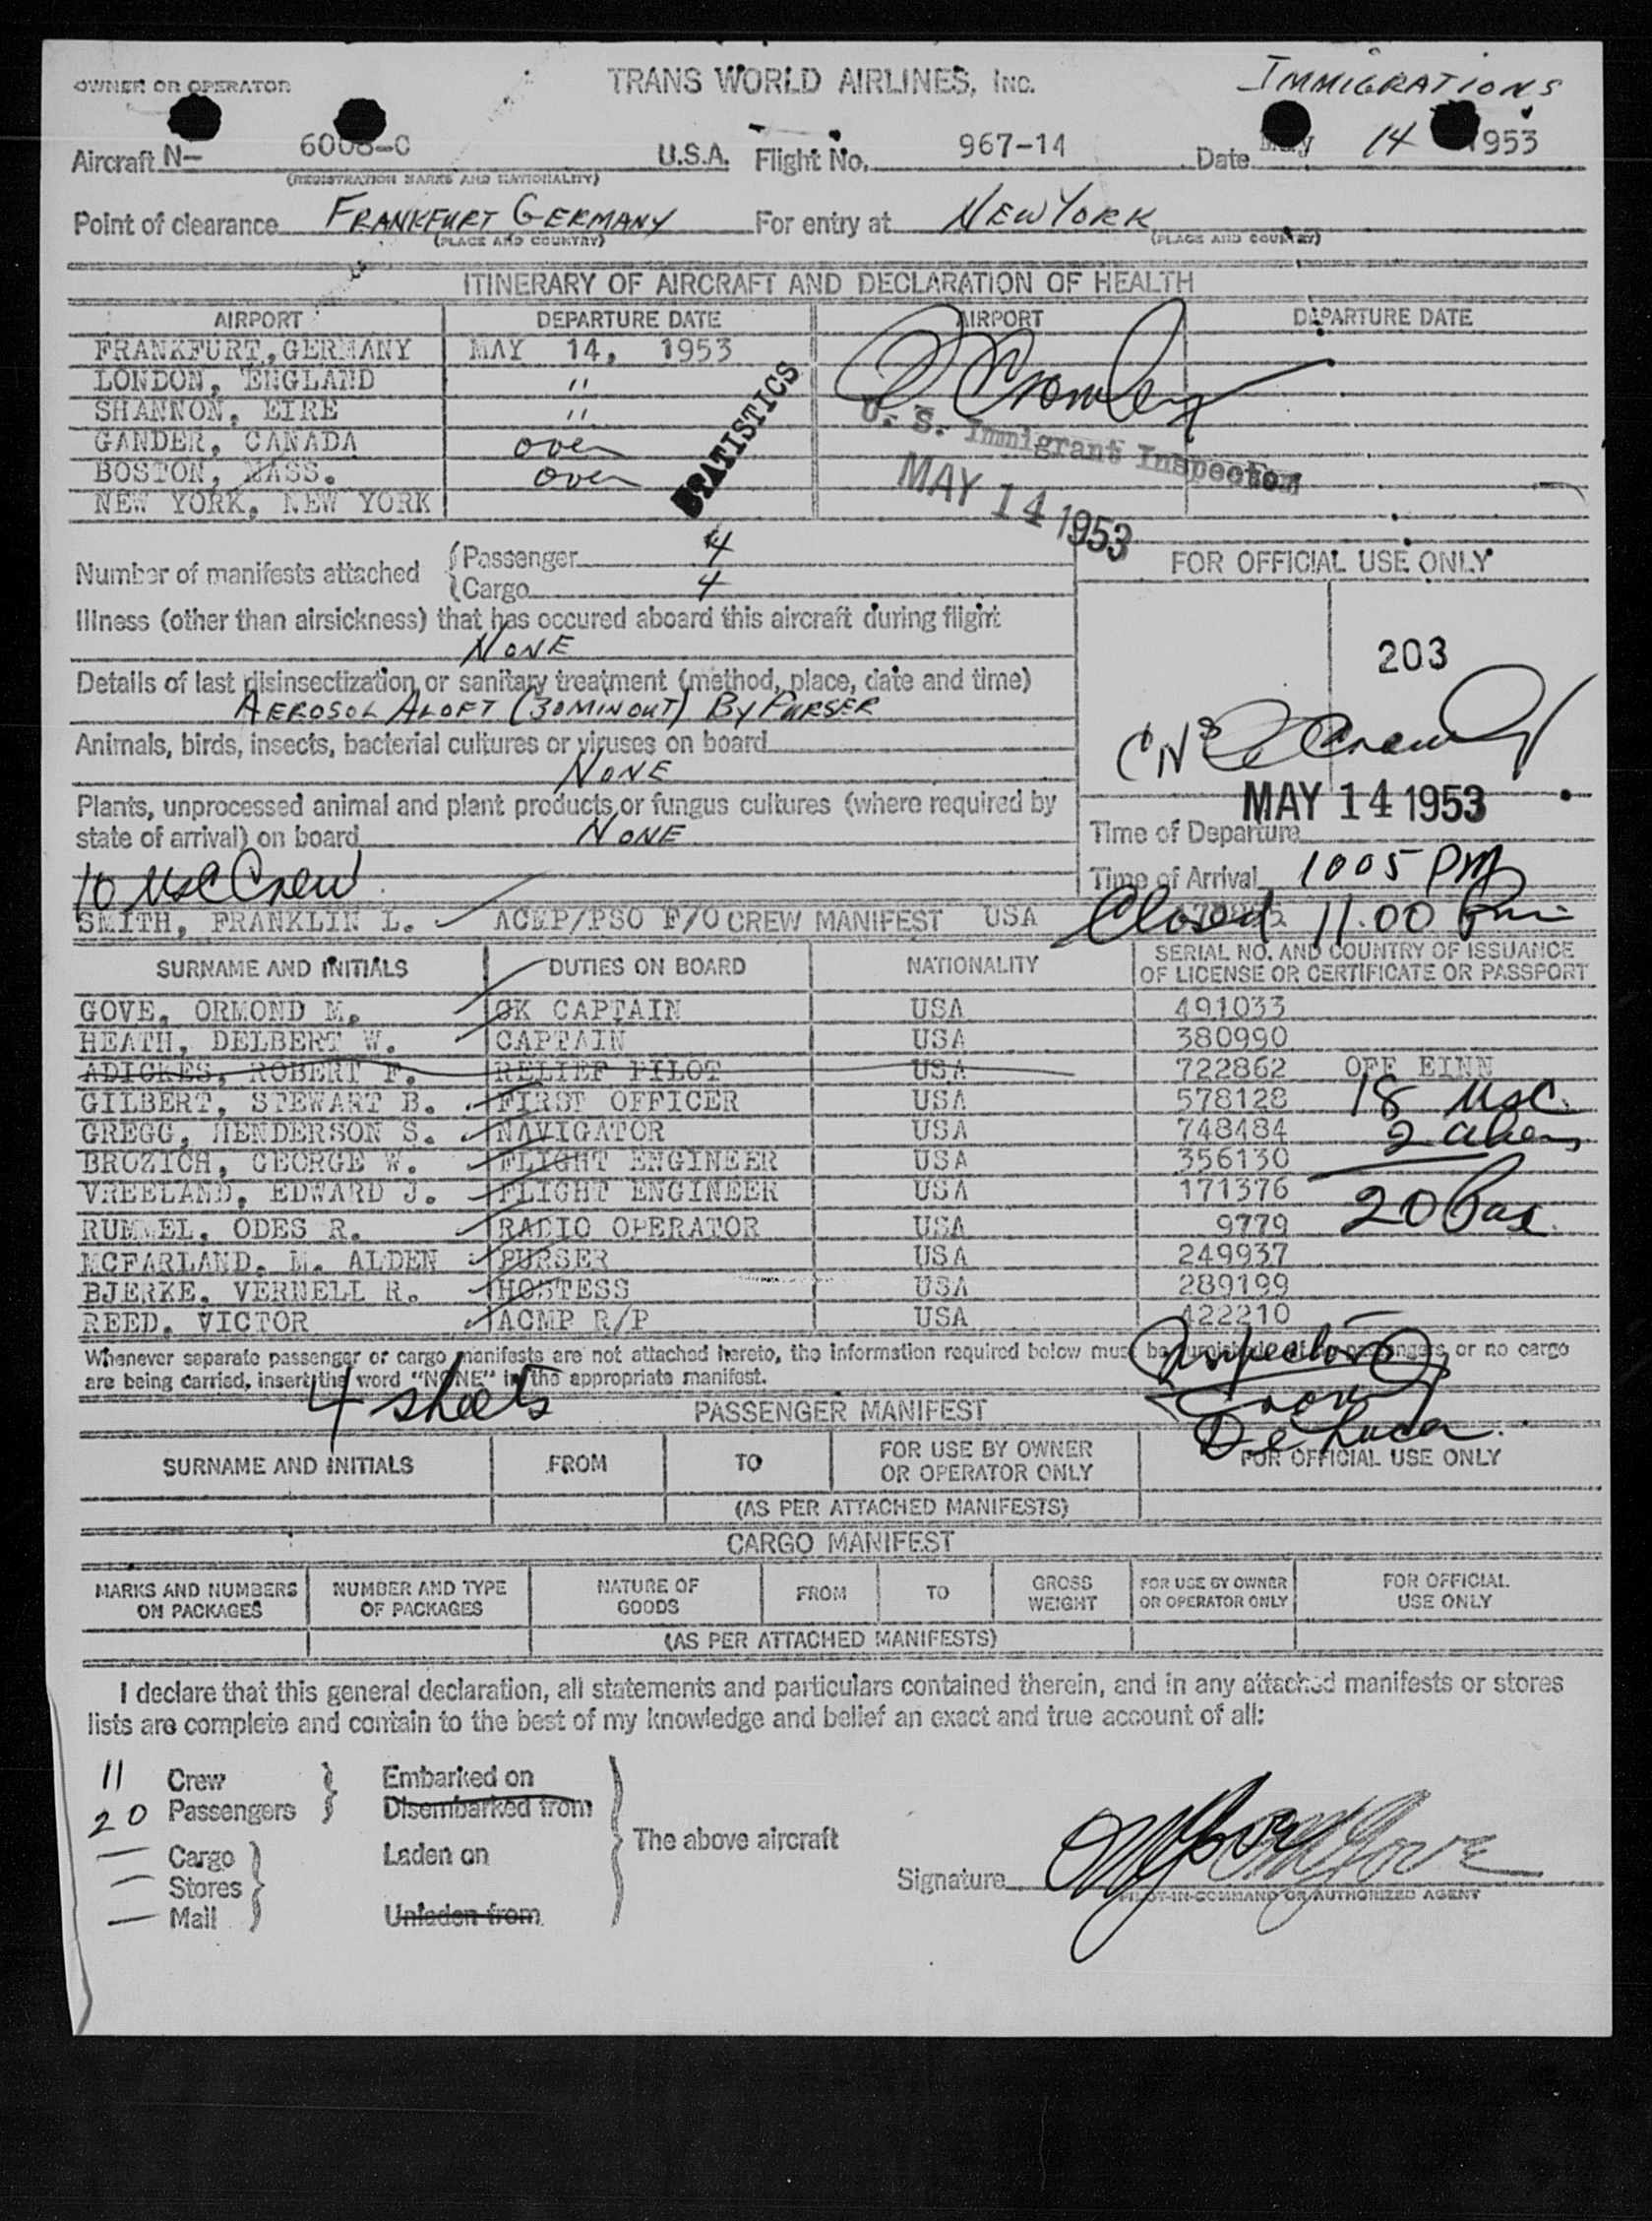 OWNER OR OPERATOR TRANS WORLD AIRLINES, INC. IMMIGRATIONS
Aircraft N- 6008-C U.S.A. Flight No. 967-14 Date May 14 1953
(REGISTRATION MARKS AND NATIONALITY)
Point of clearance FRANKFURT GERMANY For entry at NEW YORK
(PLACE AND COUNTRY) (PLACE AND COUNTRY)
ITINERARY OF AIRCRAFT AND DECLARATION OF HEALTH
AIRPORT DEPARTURE DATE AIRPORT DEPARTURE DATE
FRANKFURT, GERMANY MAY 14, 1953
LONDON, ENGLAND "
SHANNON, EIRE "
GANDER, CANADA over
BOSTON, MASS. over
NEW YORK, NEW YORK
Crowley
U. S. Immigrant Inspector
MAY 14 1953
Number of manifests attached
Passenger 4
Cargo 4
FOR OFFICIAL USE ONLY
Illness (other than airsickness) that has occured aboard this aircraft during flight
NONE
203
Details of last disinsectization or sanitary treatment (method, place, date and time)
AEROSOL ALOFT (30 MIN OUT) BY PURSER
Animals, birds, insects, bacterial cultures or viruses on board
NONE
MAY 14 1953
Plants, unprocessed animal and plant products or fungus cultures (where required by
state of arrival) on board NONE
Time of Departure
Time of Arrival 1005 PM
10 USC Crew
Closed 11.00 Pm
SMITH, FRANKLIN L. ACMP/PSO F/O CREW MANIFEST USA
SURNAME AND INITIALS DUTIES ON BOARD NATIONALITY SERIAL NO. AND COUNTRY OF ISSUANCE
OF LICENSE OR CERTIFICATE OR PASSPORT
GOVE, ORMOND M. CK CAPTAIN USA 491033
HEATH, DELBERT W. CAPTAIN USA 380990
ADICKES, ROBERT F. RELIEF PILOT USA 722862 OFF EINN
GILBERT, STEWART B. FIRST OFFICER USA 578128 18 USC.
GREGG, HENDERSON S. NAVIGATOR USA 748484 2 aliens
BROZICH, GEORGE W. FLIGHT ENGINEER USA 356130
VREELAND, EDWARD J. FLIGHT ENGINEER USA 171376
RUMMEL, ODES R. RADIO OPERATOR USA 9779 20 Pax.
MCFARLAND, M. ALDEN PURSER USA 249937
BJERKE, VERNELL R. HOSTESS USA 289199
REED, VICTOR ACMP R/P USA 422210
Whenever separate passenger or cargo manifests are not attached hereto, the information required below must be furnished. If no passengers, or no cargo
are being carried, insert the word "NONE" in the appropriate manifest.
Inspectors
Crowley
De Luca
4 sheets
PASSENGER MANIFEST
SURNAME AND INITIALS FROM TO FOR USE BY OWNER OR OPERATOR ONLY FOR OFFICIAL USE ONLY
(AS PER ATTACHED MANIFESTS)
CARGO MANIFEST
MARKS AND NUMBERS ON PACKAGES NUMBER AND TYPE OF PACKAGES NATURE OF GOODS FROM TO GROSS WEIGHT FOR USE BY OWNER OR OPERATOR ONLY FOR OFFICIAL USE ONLY
(AS PER ATTACHED MANIFESTS)
I declare that this general declaration, all statements and particulars contained therein, and in any attached manifests or stores
lists are complete and contain to the best of my knowledge and belief an exact and true account of all:
11 Crew Embarked on
20 Passengers Disembarked from
— Cargo Laden on The above aircraft
— Stores
— Mail Unladen from
Signature OMGove OMGove
PILOT-IN-COMMAND OR AUTHORIZED AGENT